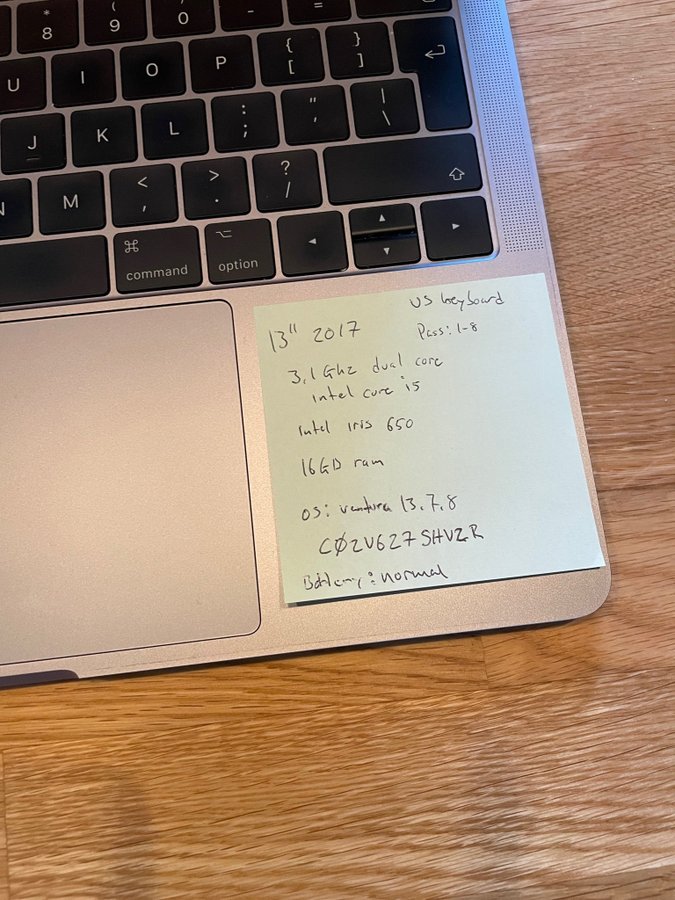 * ( ) _ +
8 9 0 - =
U I O P { [ } ]
J K L : ; " ' | \
N M < , > . ? /
⌘ command ⌥ option ◄ ▲ ▼ ►
US keyboard
13" 2017 Pass: 1-8
3,1 Ghz dual core
intel core i5
intel iris 650
16GB ram
OS: ventura 13.7.8
CØ2V627SHV2R
Battery: normal